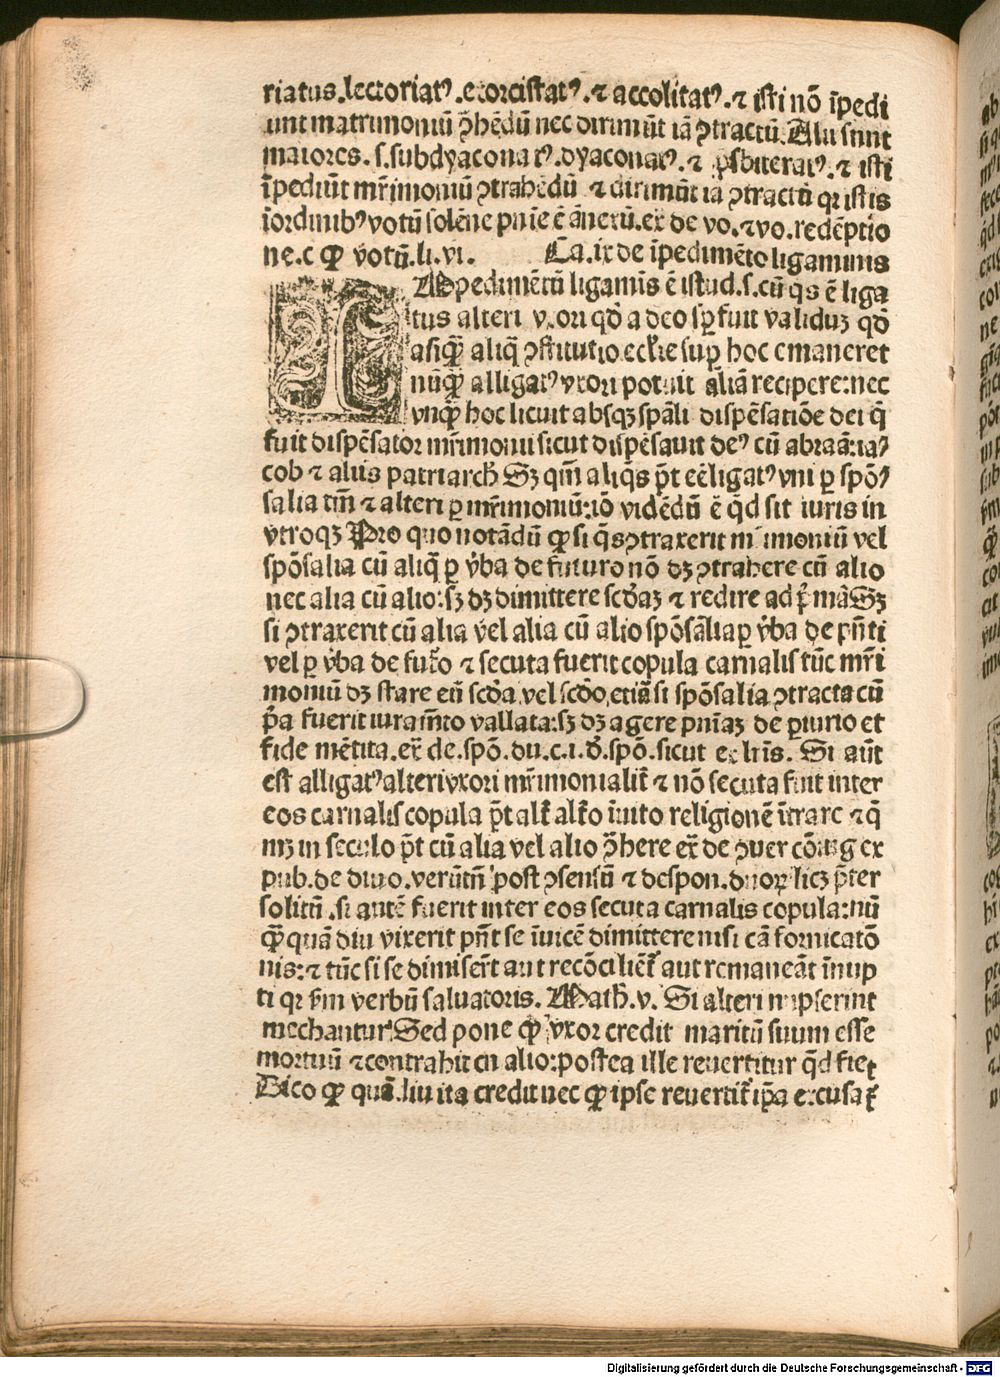 riatus.lectoriatꝰ.exorcistatꝰ.⁊ accolitatꝰ.⁊ isti nō īpedi
unt matrimoniū ↄ̄hēdū nec dirimūt iā ↄtractū. Alii sunt
maiores.s.subdyaconatꝰ.dyaconatꝰ.⁊ p̄sbiteratꝰ.⁊ isti
īpediūt mr̄imoniū ↄtrahēdū ⁊ dirimūt iā ↄtractū qr istis
īordinibꝰ votū solēne ē ānexū.ex̄ de vo.⁊ vo.redēptio
ne.c ꝙ votū.li.vi. Ca.ix de īpedimēto ligaminis
IMpedimētū ligamīs ē istud.s.cū qͥs ē liga
tus alteri vxori qd̄ adeo sp̄ fuit validuꝫ qd̄
asiqͣꝫ aliqͣ ↄstitutio ecl̄ie sup̄ hoc emaneret
nūqͣꝫ alligatꝰ vxori potuit aliā recipere:nec
vnqͣꝫ hoc licuit absqꝫ spāli dispēsatiōe dei qͥ
fuit dispēsator mr̄imonii sicut dispēsauit deꝰ cū abraā:iaꝰ
cob ⁊ aliis patriarch̄ Sꝫ qm̄ aliqͥs p̄t eē ligatꝰ vni ꝑ spōꝰ
salia tm̄ ⁊ alteri ꝑ mr̄imoniū:iō vidēdū ē qͥd sit iuris in
vtroqꝫ Pro quo notādū ꝙ si qͥs ↄtraxerit moniū vel
spōsalia cū aliqͣ ꝑ v̄ba de futuro nō dꝫ ↄtrahere cū alio
nec alia cū alio:sꝫ dꝫ dimittere scd̄aꝫ ⁊ redire ad pͥmā Sꝫ
si ↄtraxerit cū alia vel alia cū alio spōsalia ꝑ v̄ba de pn̄ti
vel ꝑ v̄ba de futo ⁊ secuta fuerit copula carnalis tūc mr̄i
moniū dꝫ stare cū scd̄a vel scd̄o,etiā si spōsalia ↄtracta cū
pͥa fuerit iuram̄to vallata:sꝫ dꝫ agere pniaꝫ de ꝑiurio et
fide mētita.ex̄ de.spō.du.c.i.⁊ d̄.spō.sicut ex lr̄is. Si aūt
est alligatꝰ alteri vxori mr̄imonialit̄ ⁊ nō secuta fuit inter
eos carnalis copula p̄t alt̄ alt̄o īuito religionē īt̄rare ⁊ qͥ
mꝫ in seculo p̄t cū alia vel alio ↄ̄here ex̄ de ↄuer cōiug ex
pub.de diuo.verūtn̄ post ↄsensū ⁊ despon.duoꝝ licꝫ p̄ter
solitū .si autē fuerit inter eos secuta carnalis copula:nū
qͣꝫ quā diu vixerit pn̄t se īuicē dimittere nisi cā fornicatō
nis:⁊ tūc si se dimiser̄t aut recōciliēt̄ aut remaneāt īnup
ti qr s̄m verbū saluatoris. Math̄.v. Si alteri nupserint
mechantur Sed pone ꝙ vxor credit maritū suum esse
mortuū ⁊ contrahit cū alio:postea ille reuertitur qͥd fiet
Dico ꝙ quādiu ita credit nec ꝙ ipse reuertit̄ ip̄a excusat̄
Digitalisierung gefördert durch die Deutsche Forschungsgemeinschaft - DFG